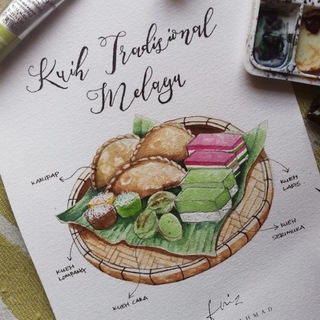 Kuih Tradisional
Melayu
KARIPAP
KUEH LAPIS
KUEH SERIMUKA
KUEH LOMPANG
KUEH CARA